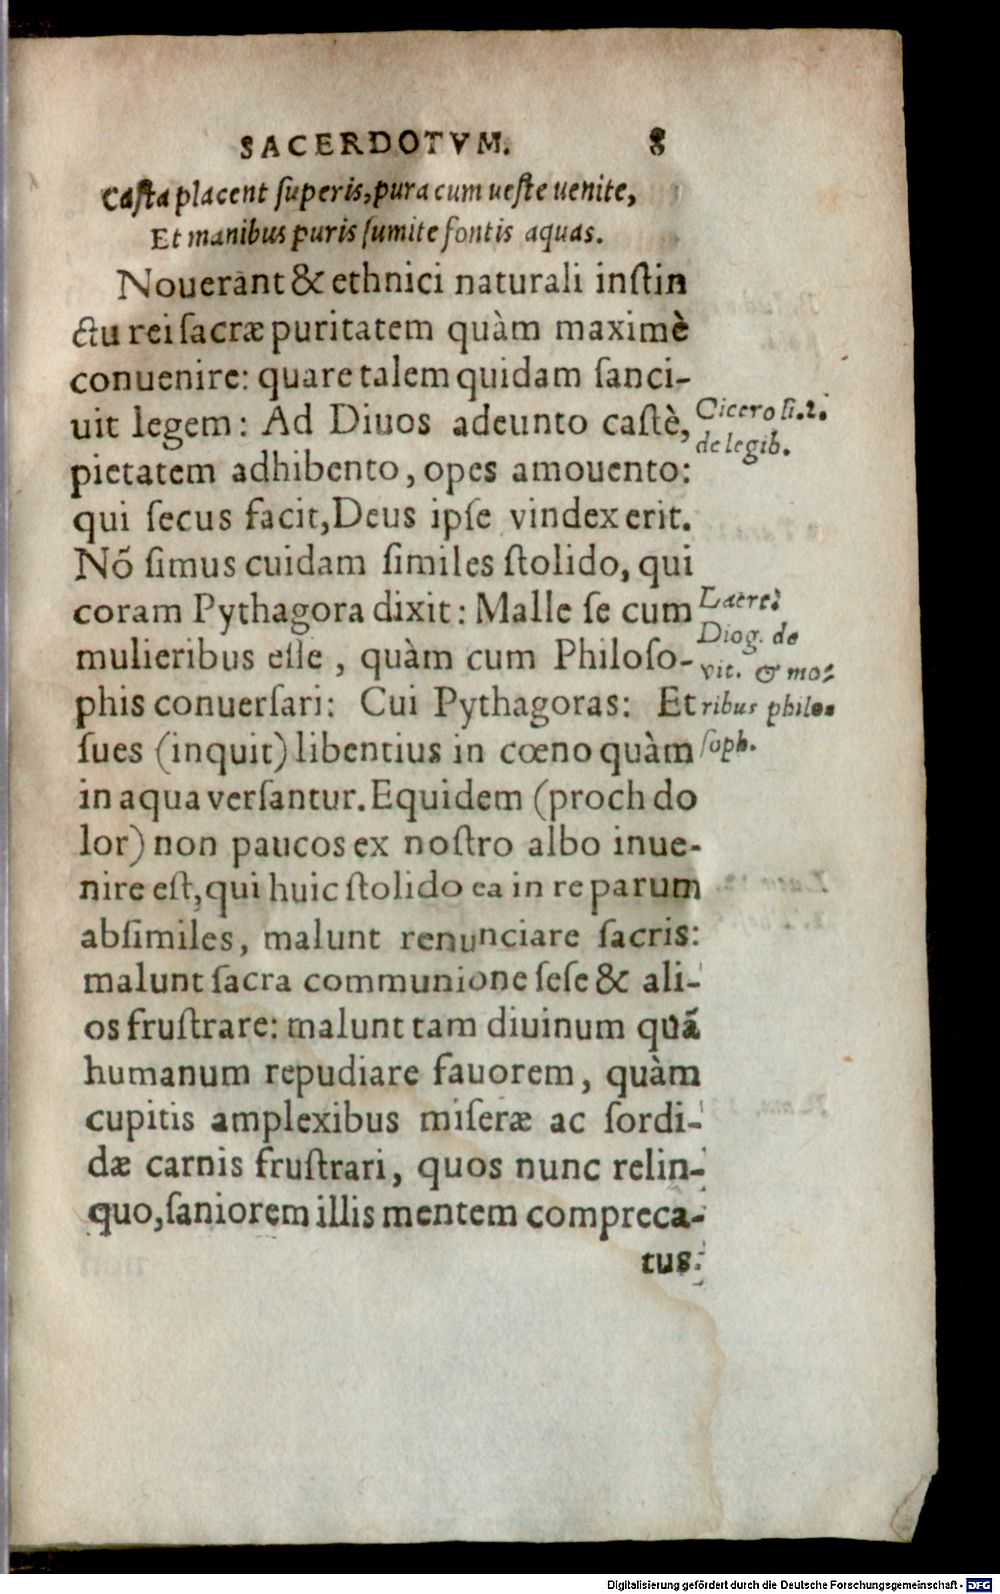 SACERDOTVM. 8
Casta placent ſuperis, pura cum ueſte uenite,
Et manibus puris ſumite fontis aquas.
Nouerant & ethnici naturali inſtin
ctu rei ſacræ puritatem quàm maximè
conuenire: quare talem quidam ſanci-
uit legem: Ad Diuos adeunto caſtè,
Cicero li. 2.
de legib.
pietatem adhibento, opes amouento:
qui ſecus facit, Deus ipſe vindex erit.
Nõ ſimus cuidam ſimiles ſtolido, qui
coram Pythagora dixit: Malle ſe cum
mulieribus eſſe, quàm cum Philoſo-
phis conuerſari: Cui Pythagoras: Et
Laert.
Diog. de
vit. & mo-
ribus philo-
ſoph.
ſues (inquit) libentius in cœno quàm
in aqua verſantur. Equidem (proch do
lor) non paucos ex noſtro albo inue-
nire eſt, qui huic ſtolido ea in re parum
abſimiles, malunt renunciare ſacris:
malunt ſacra communione ſeſe & ali-
os fruſtrare: malunt tam diuinum quã
humanum repudiare fauorem, quàm
cupitis amplexibus miſeræ ac ſordi-
dæ carnis fruſtrari, quos nunc relin-
quo, ſaniorem illis mentem compreca-
tus.
Digitalisierung gefördert durch die Deutsche Forschungsgemeinschaft - DFG